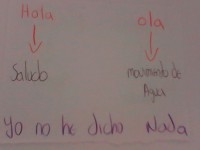 Hola ola
Saludo movimiento de
Agua
Yo no he dicho Nada